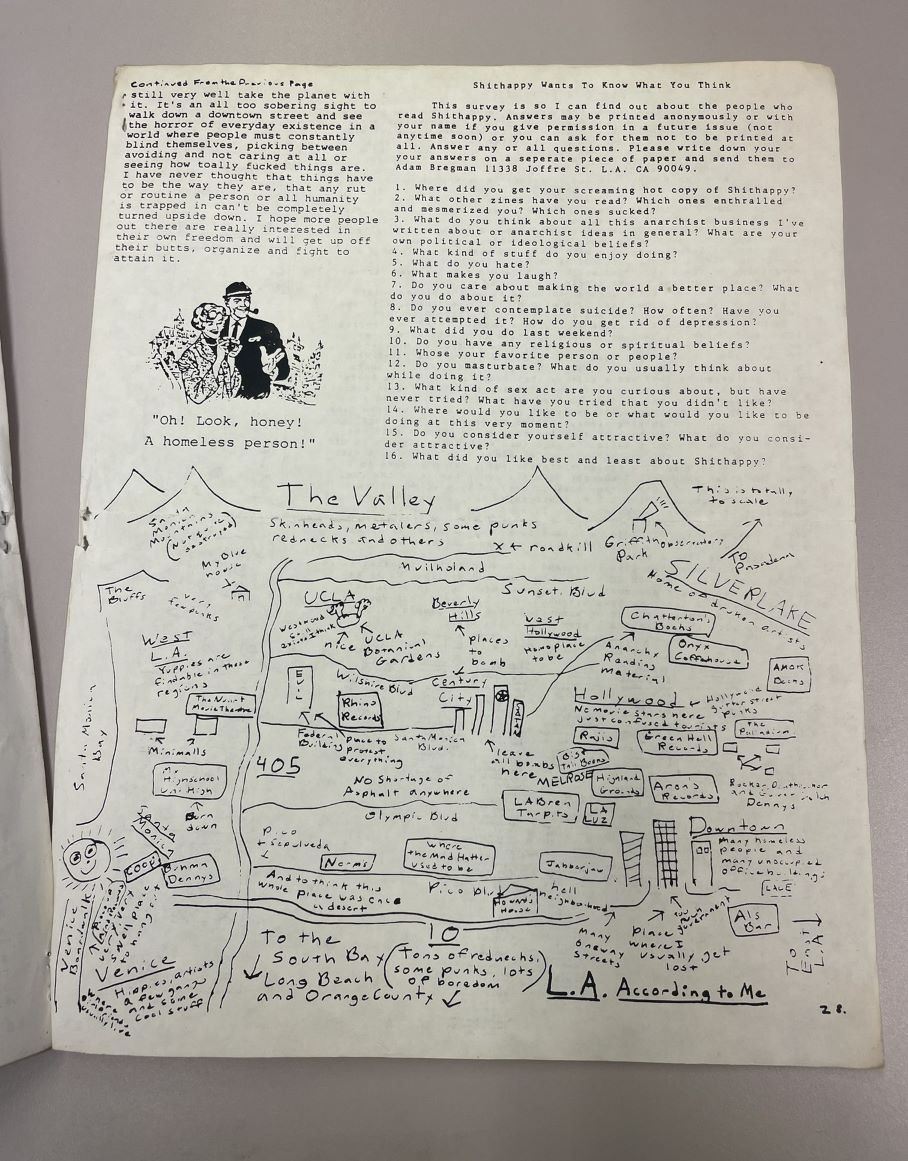 Continued From the Previous Page
still very well take the planet with
it. It's an all too sobering sight to
walk down a downtown street and see
the horror of everyday existence in a
world where people must constantly
blind themselves, picking between
avoiding and not caring at all or
seeing how toally fucked things are.
I have never thought that things have
to be the way they are, that any rut
or routine a person or all humanity
is trapped in can't be completely
turned upside down. I hope more people
out there are really interested in
their own freedom and will get up off
their butts, organize and fight to
attain it.
"Oh! Look, honey!
A homeless person!"
Shithappy Wants To Know What You Think
This survey is so I can find out about the people who
read Shithappy. Answers may be printed anonymously or with
your name if you give permission in a future issue (not
anytime soon) or you can ask for them not to be printed at
all. Answer any or all questions. Please write down your
your answers on a seperate piece of paper and send them to
Adam Bregman 11338 Joffre St. L.A. CA 90049.
1. Where did you get your screaming hot copy of Shithappy?
2. What other zines have you read? Which ones enthralled
and mesmerized you? Which ones sucked?
3. What do you think about all this anarchist business I've
written about or anarchist ideas in general? What are your
own political or ideological beliefs?
4. What kind of stuff do you enjoy doing?
5. What do you hate?
6. What makes you laugh?
7. Do you care about making the world a better place? What
do you do about it?
8. Do you ever contemplate suicide? How often? Have you
ever attempted it? How do you get rid of depression?
9. What did you do last weekend?
10. Do you have any religious or spiritual beliefs?
11. Whose your favorite person or people?
12. Do you masturbate? What do you usually think about
while doing it?
13. What kind of sex act are you curious about, but have
never tried? What have you tried that you didn't like?
14. Where would you like to be or what would you like to be
doing at this very moment?
15. Do you consider yourself attractive? What do you consi-
der attractive?
16. What did you like best and least about Shithappy?
The Valley
Skinheads, metalers, some punks
rednecks and others
x ← roadkill
This is totally
to scale
Griffith
Park
Observatory
To
Pasadena
Santa
Monica
Mountains
My Blue
house
The
Bluffs
Very
few punks
Mulholand
Sunset Blvd
SILVERLAKE
Home of drunk artists
UCLA
nice UCLA
Botanical
Gardens
Beverly
Hills
places
to
bomb
West
Hollywood
Chatterton's
Books
Onyx
Coffehouse
Amok
Books
Anarchy
Reading
Material
West
L.A.
Yuppies are
findable in these
regions
The Nuart
Movie Theatre
Minimalls
My
Highschool
Uni High
Burn
down
Santa Monica
Bay
Wilshire Blvd
EVIL
Rhino
Records
Federal
Building
place to
protest
everything
Century
City
Santa Monica
Blvd.
leave
all bombs
here
Hollywood
No movie stars here
just confused tourists
Hollywood
gutter
punks
The
Palladium
Rajis
Green Hell
Records
MELROSE
Highland
Grounds
Aron's
Records
Dennys
405
No Shortage of
Asphalt anywhere
LA Brea
Tarpits
LA
LUZ
Olympic Blvd
Downtown
many homeless
people and
many unoccupied
office buildings
LACE
Santa
Monica
CO-OP
Dennys
Pico
+ sepulveda
Norms
where
the Mad Hatter
used to be
Jabberjaw
And to think this
whole place was once
a desert
Pico Blvd
hell
neighbourhood
Hounds
House
Many
oneway
streets
Place
where I
usually get
lost
Als
Bar
To East
L.A.
10
Venice
Boardwalk
Venice
Hippies, artists
a few gangs
and some
cool stuff
To the
South Bay
Long Beach
and Orange County
(Tons of rednecks,
some punks, lots
of boredom)
L.A. According to Me
28.